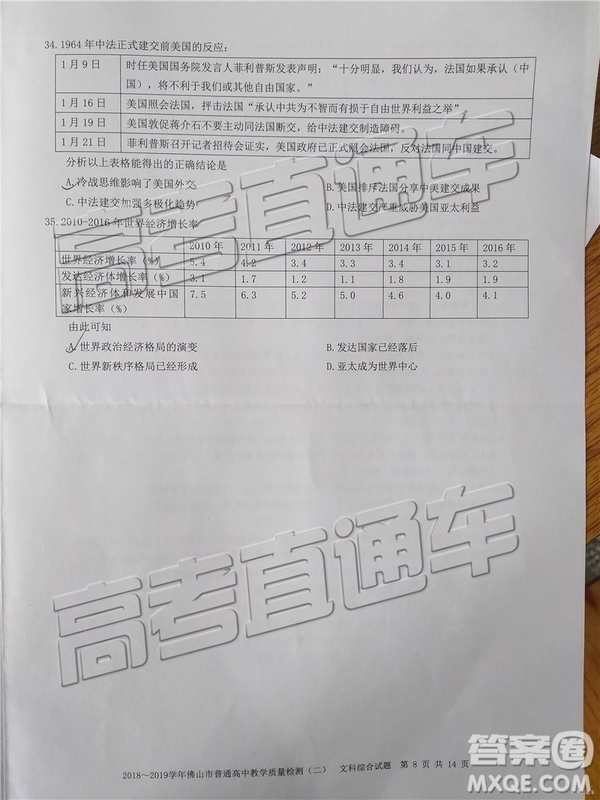 34.1964年中法正式建交前美国的反应：
1月9日 时任美国国务院发言人菲利普斯发表声明：“十分明显，我们认为，法国如果承认（中
国），将不利于我们或其他自由国家。”
1月16日 美国照会法国，抨击法国“承认中共为不智而有损于自由世界利益之举”
1月19日 美国敦促蒋介石不要主动同法国断交，给中法建交制造障碍。
1月21日 菲利普斯召开记者招待会证实，美国政府已正式照会法国，反对法国同中国建交。
分析以上表格能得出的正确结论是
A.冷战思维影响了美国外交 B.美国排斥法国分享中美建交成果
C.中法建交加强多极化趋势 D.中法建交严重威胁美国亚太利益
35.2010-2016年世界经济增长率
2010年 2011年 2012年 2013年 2014年 2015年 2016年
世界经济增长率（%） 5.4 4.2 3.4 3.3 3.4 3.1 3.2
发达经济体增长率（%） 3.1 1.7 1.2 1.1 1.8 1.9 1.9
新兴经济体和发展中国 7.5 6.3 5.2 5.0 4.6 4.0 4.1
家增长率（%）
由此可知
A.世界政治经济格局的演变 B.发达国家已经落后
C.世界新秩序格局已经形成 D.亚太成为世界中心
高考直通车
高考直通车
2018～2019学年佛山市普通高中教学质量检测（二） 文科综合试题 第8页 共14页
答案圈